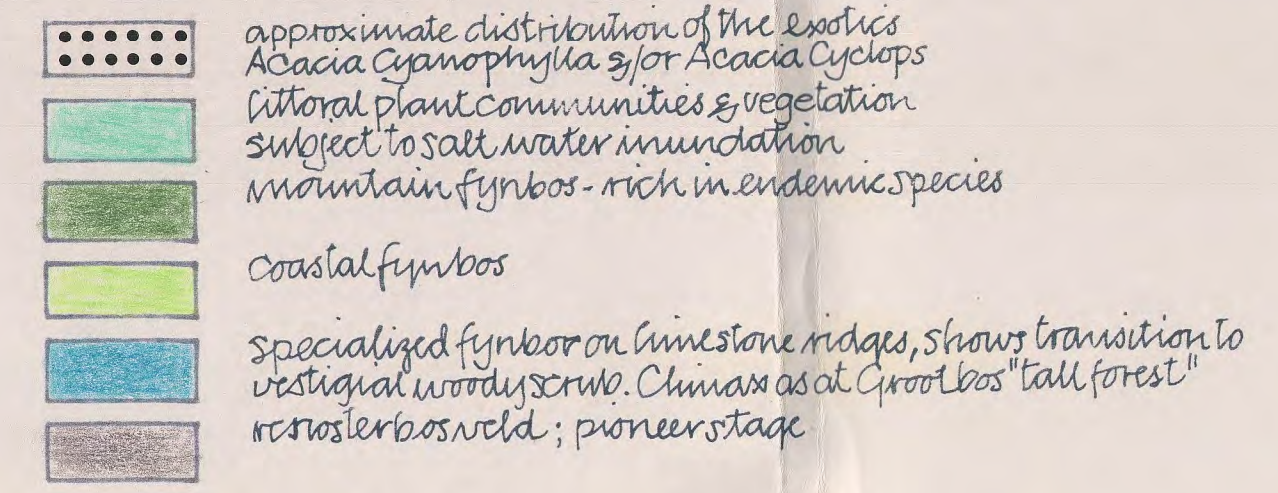 approximate distribution of the exotics
Acacia Cyanophylla &/or Acacia Cyclops
littoral plant communities & vegetation
subject to salt water inundation
mountain fynbos - rich in endemic species
coastal fynbos
specialized fynbos on limestone ridges, shows transition to
vestigial woody scrub. Climax as at Grootbos "tall forest"
renosterbosveld ; pioneer stage